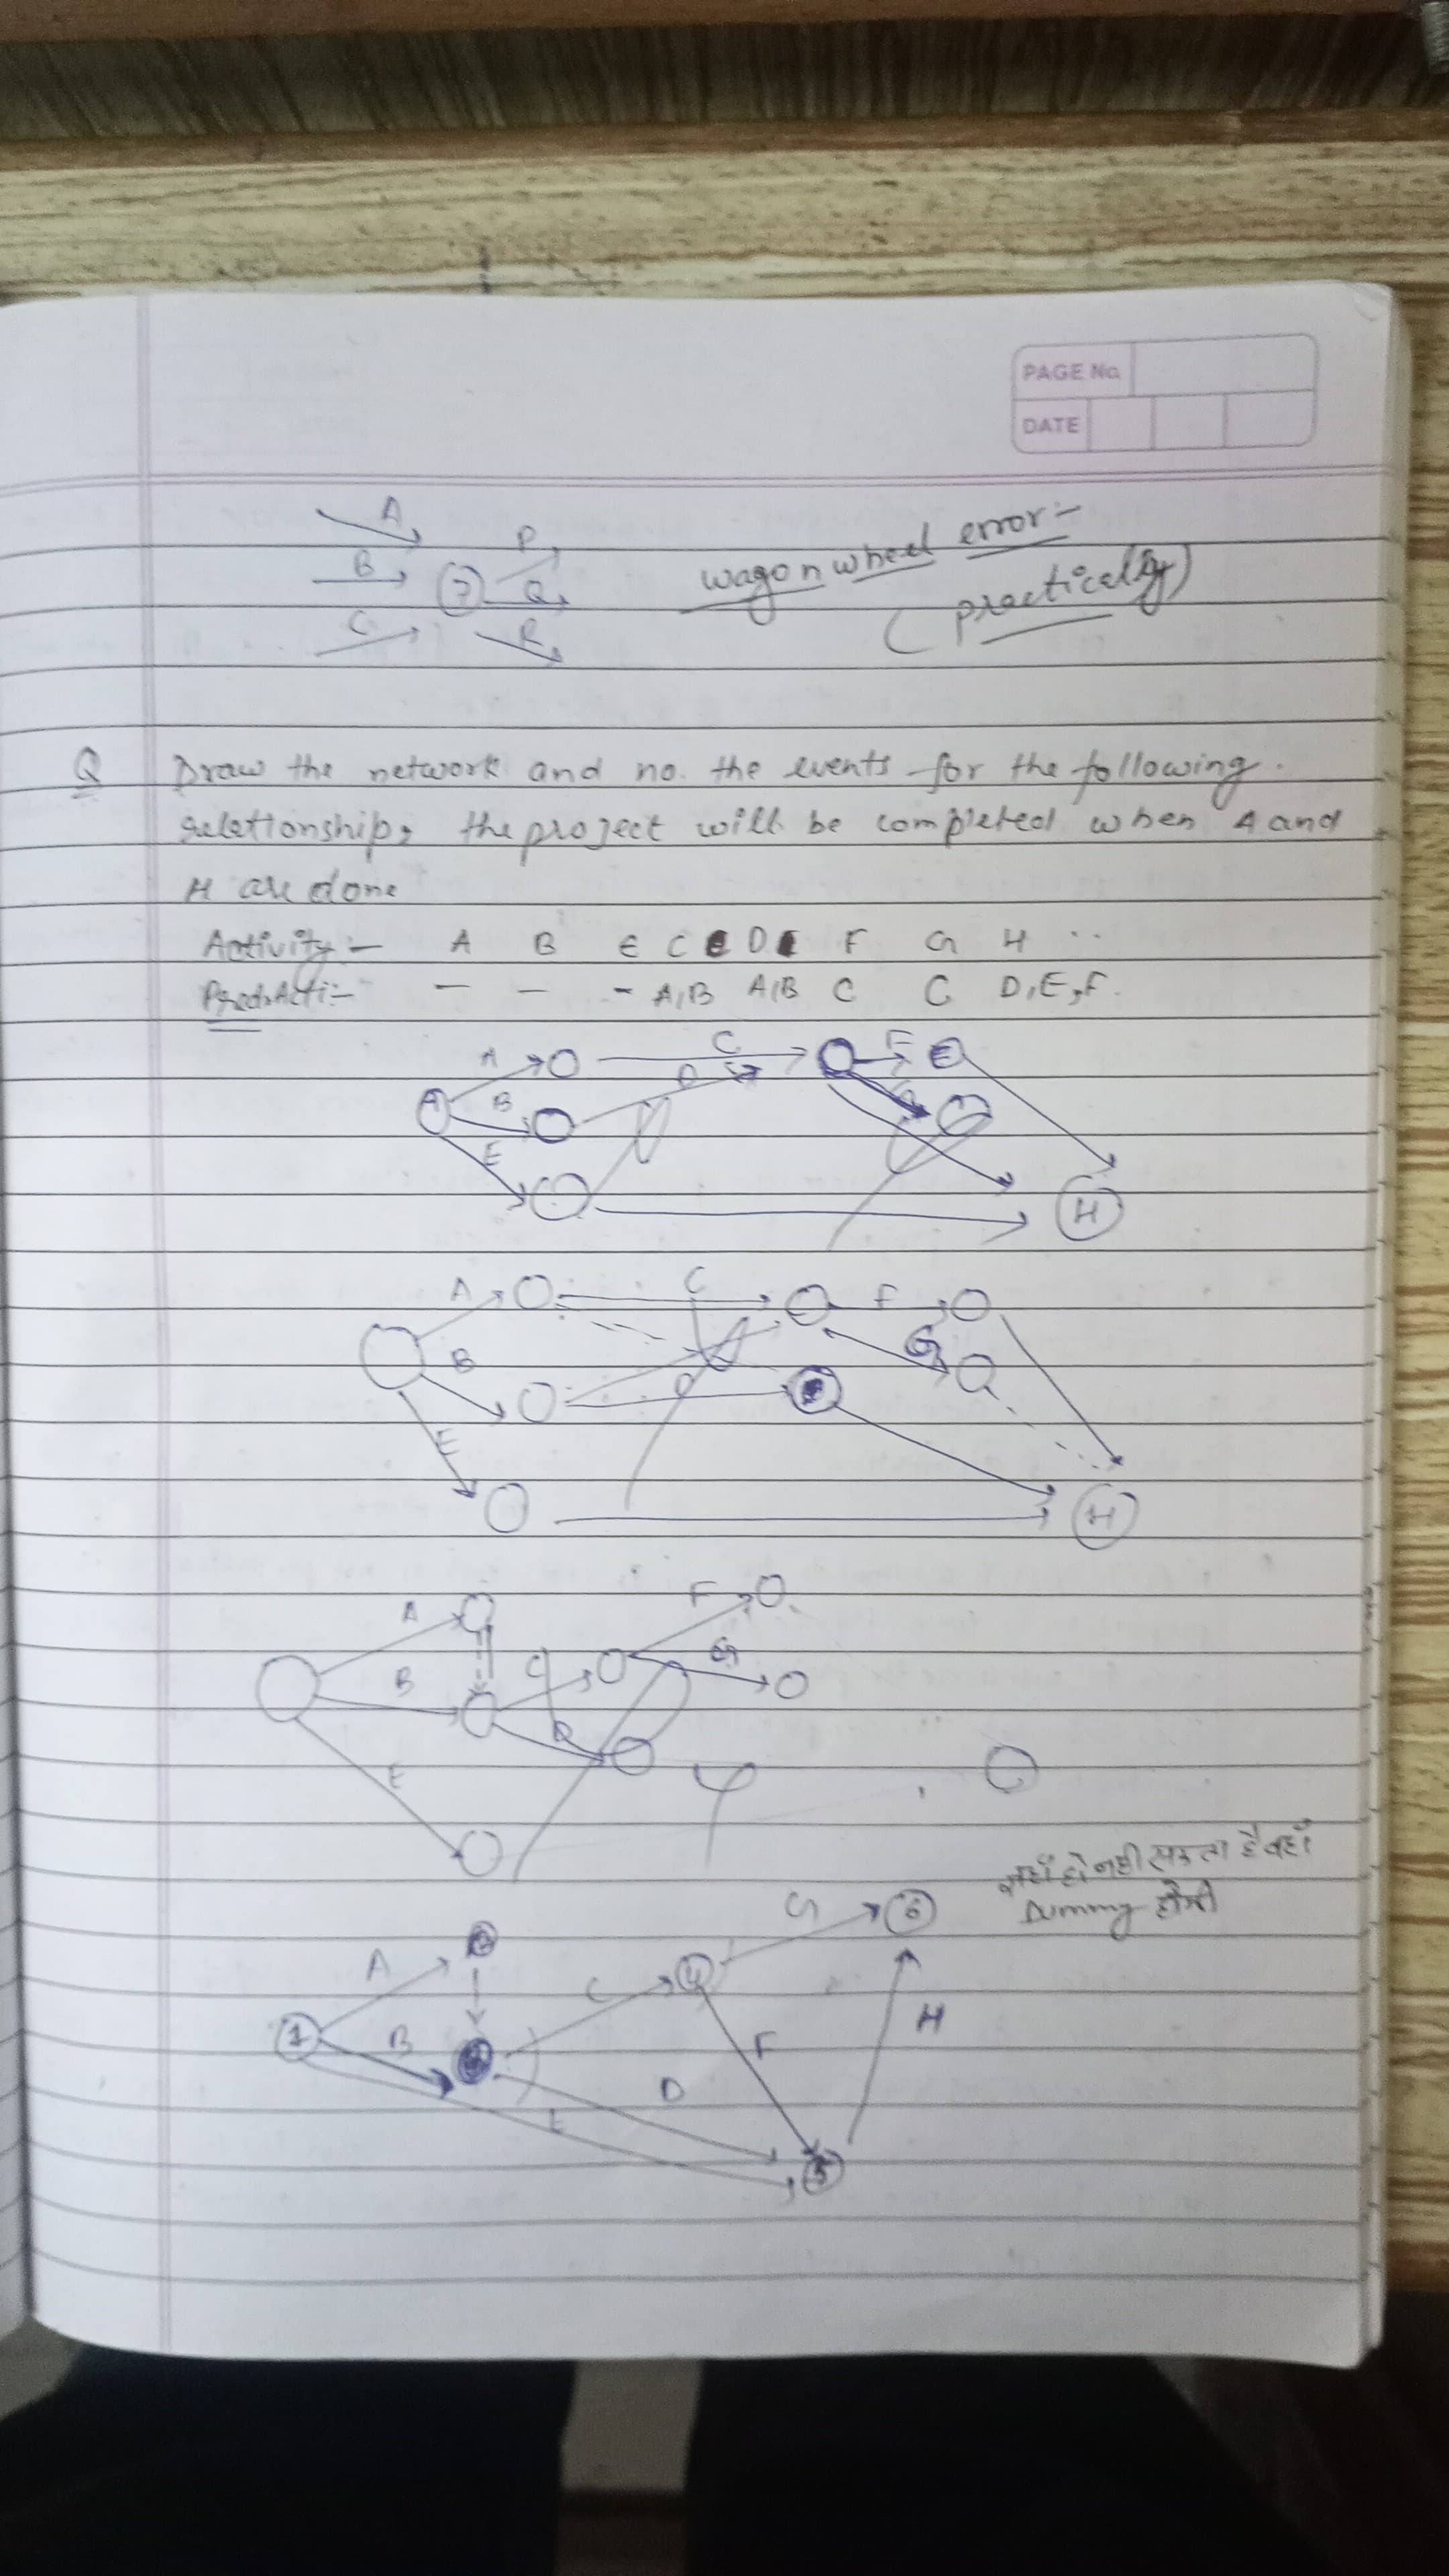 PAGE No.
DATE
A
B
C
7
P
Q
R
wagon wheel error :-
( practically )
Q Draw the network and no. the events for the following.
relationship, the project will be completed when A and
H are done
Activity :- A B E C D F G H ..
Pred. Acti :- - - - A,B A,B C C D,E,F.
A C F
A B D G
E
H
A C F
B D G
E
H
A F
B C G
D
E
जहाँ हो नही सकता है वहाँ
Dummy होगी
G 6
A 4
C
1 B F H
D
E
5